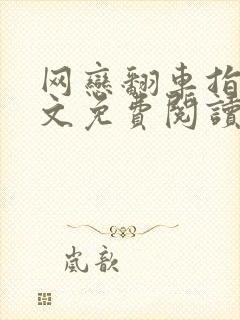 网戀翻車指
文免費閱讀
嵐歆